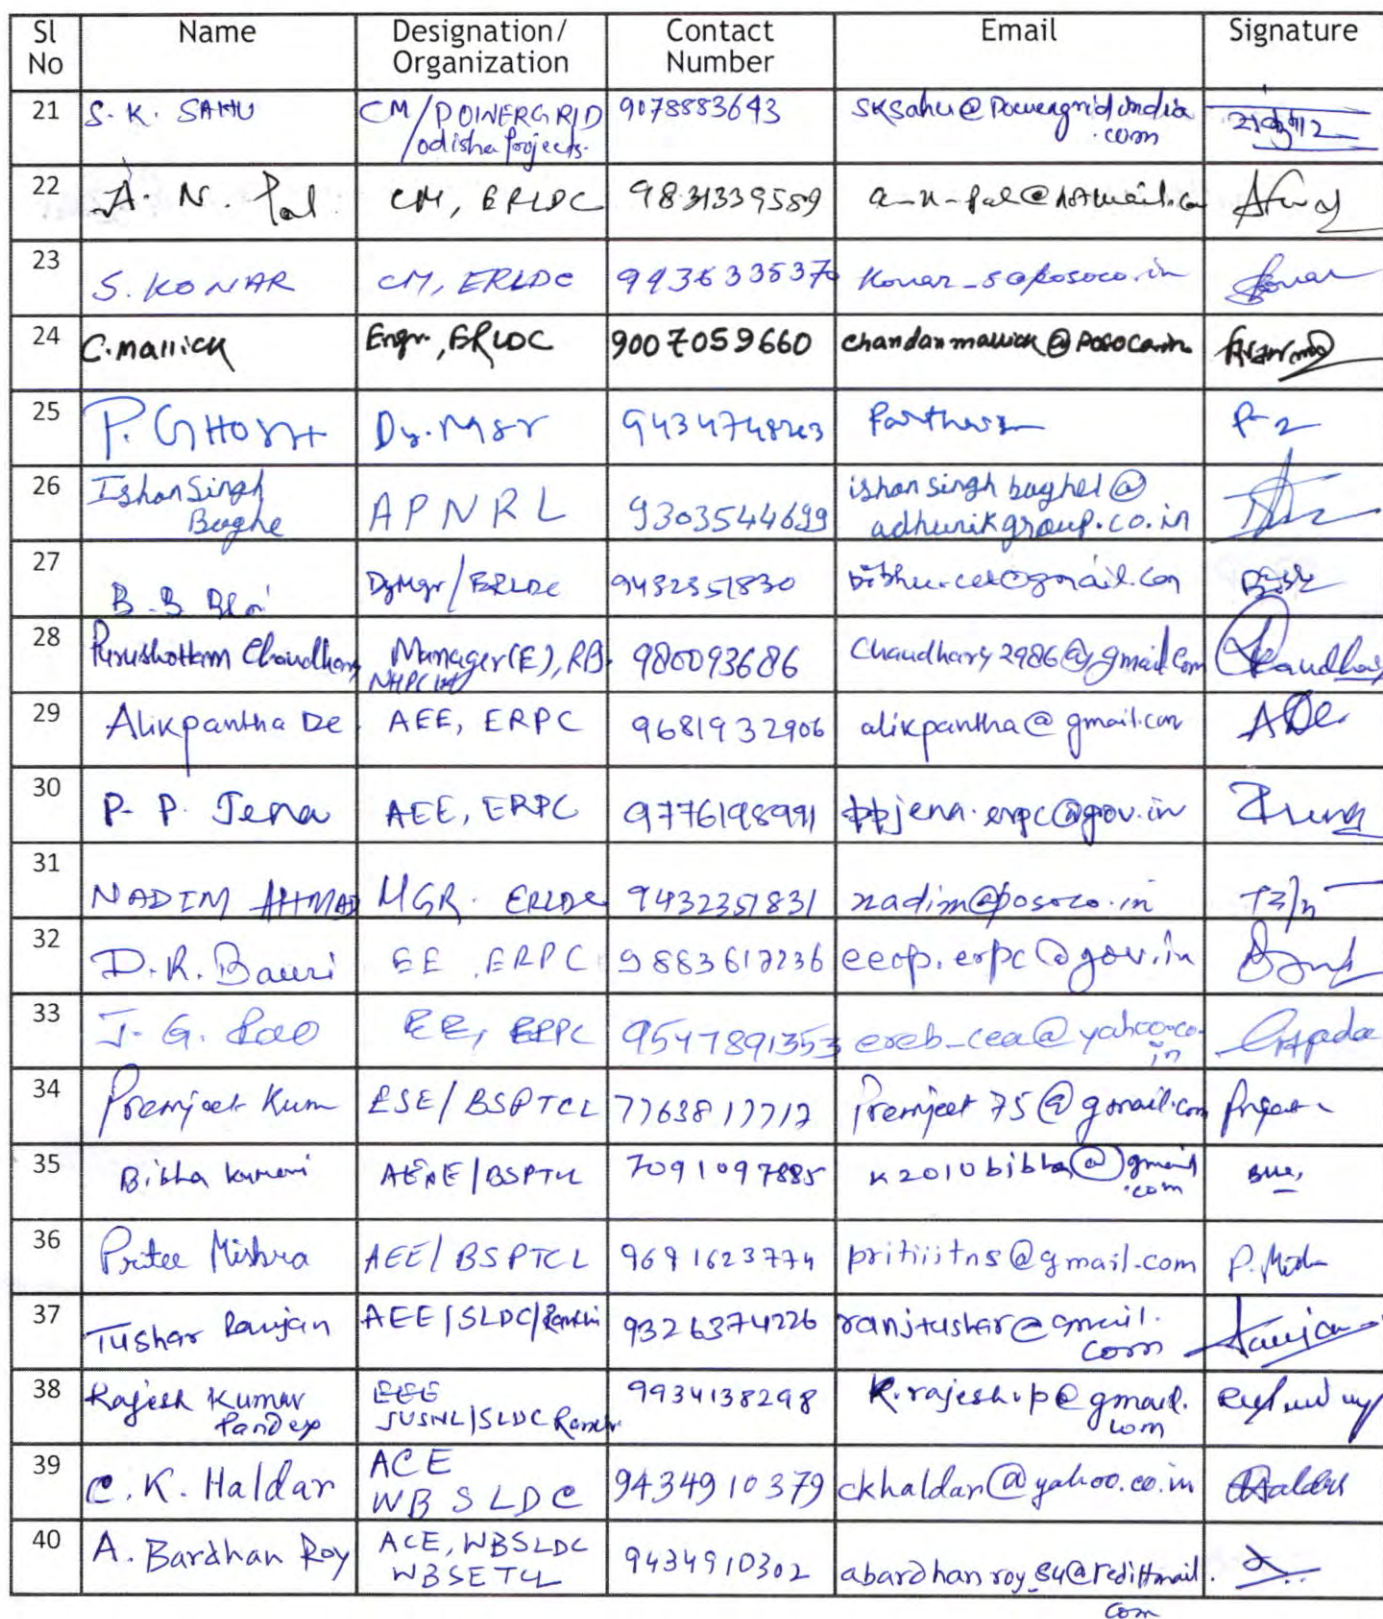 Sl No Name Designation/ Organization Contact Number Email Signature
21 S. K. SAHU CM/POWERGRID /odisha Projects. 9078883643 sksahu@powergridindia.com
22 A. N. Pal CM, ERLDC 9831339589 a_n_pal@hotmail.com
23 S. KONAR CM, ERLDC 9436335370 konar_s@posoco.in
24 C. Mallick Engr., ERLDC 9007059660 chandanmallick@posoco.in
25 P. GHOSH Dy. Mgr
26 Ishan Singh Baghe APNRL 9303544699 ishansinghbaghel@ adhunikgroup.co.in
27 B. B. Dy Mgr/ERLDC 9432351830 bibhu.cet@gmail.com
28 Purushottam Choudhary Manager(E), NHPC Ltd 980093686 Chaudhary2986@gmail.com Chaudhary
29 Alikpantha De. AEE, ERPC 9681932906 alikpantha@gmail.com ADe.
30 P. P. Jena AEE, ERPC 9776198991 ppjena.erpc@gov.in
31 NADIM AHMAD MGR. ERLDC 9432351831 nadim@posoco.in
32 D. R. Bauri EE, ERPC 9883617236 eeop.erpc@gov.in
33 J. G. Rao EE, ERPC 9547891353 ereb_cea@yahoo.co.in
34 Premjeet Kum ESE/BSPTCL 7763817712 Premjeet75@gmail.com
35 Bibha kumari BSPTCL 7091097885 k2010bibha@gmail.com
36 Pritee Mishra AEE/BSPTCL 9691623774 pritiiitns@gmail.com P. Mish
37 Tushar Ranjan AEE/SLDC/Ranchi 9326374226 ranjtushar@gmail.com Ranjan
38 Rajesh Kumar Pandey EEE JUSNL/SLDC Ranchi 9934138298 k.rajesh.p@gmail.com
39 C. K. Haldar ACE WB SLDC 9434910379 ckhaldar@yahoo.co.in Haldar
40 A. Bardhan Roy ACE, WBSLDC WBSETCL 9434910302 abardhanroy_84@rediffmail.com